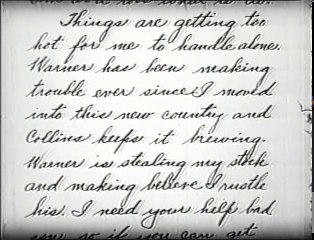 Things are getting too
hot for me to handle alone.
Warner has been making
trouble ever since I moved
into this new country and
Collins keeps it brewing.
Warner is stealing my stock
and making believe I rustle
his. I need your help bad
so if you can get